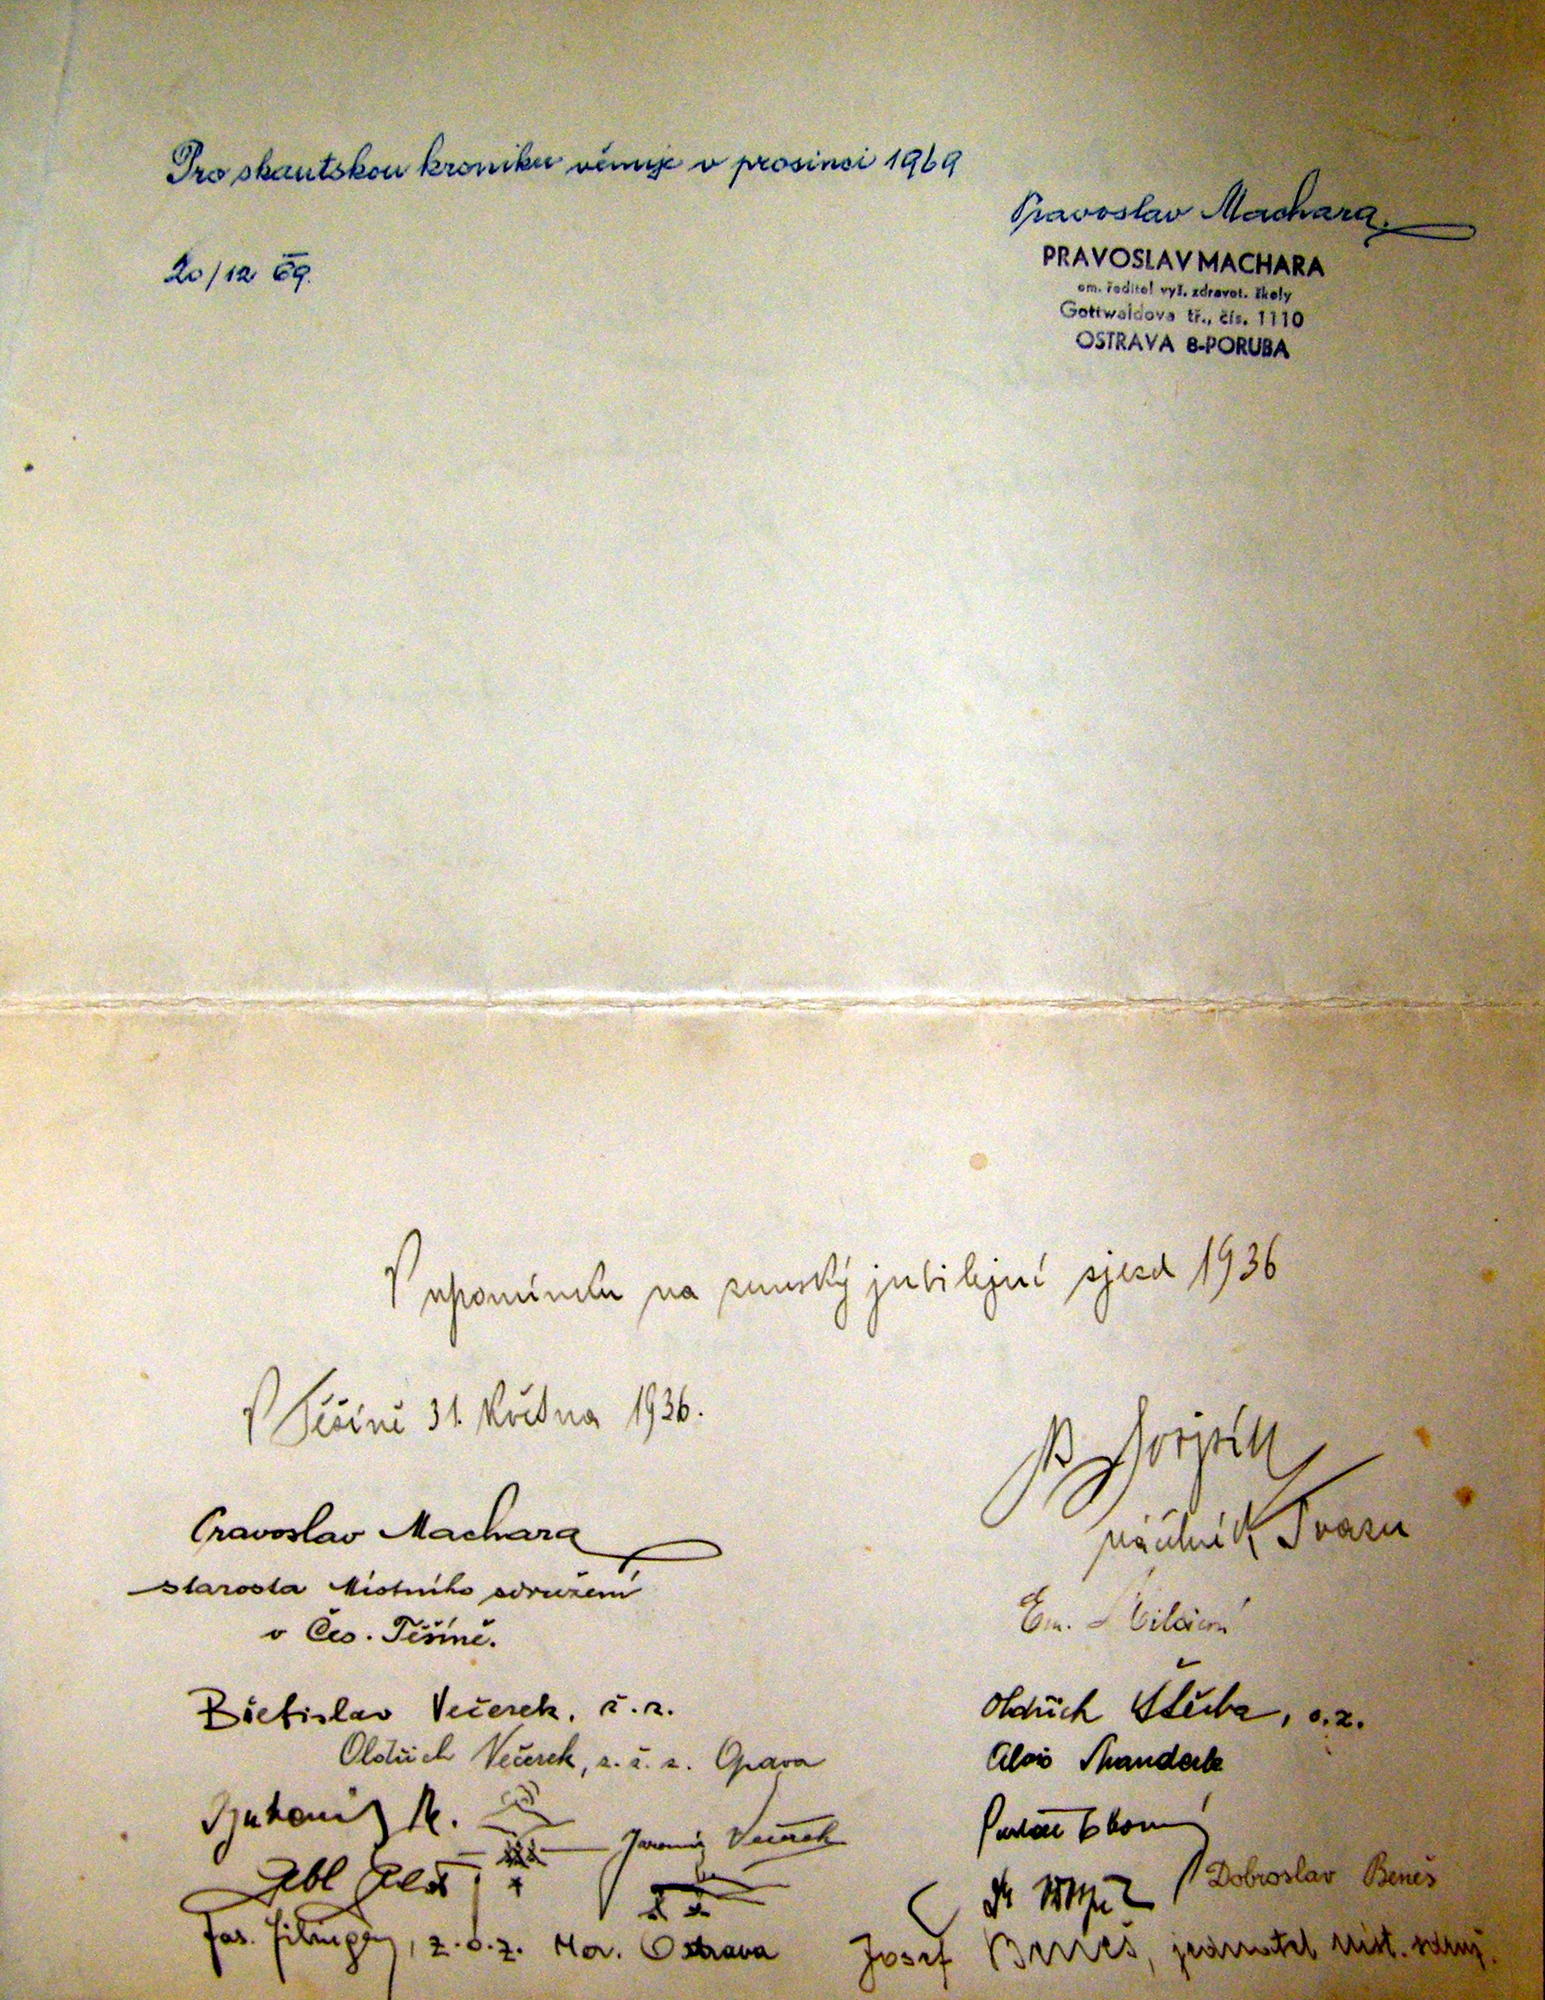 Pro skautskou kroniku věnuje v prosinci 1969
Pravoslav Machara
PRAVOSLAV MACHARA
em. ředitel vyš. zdravot. školy
Gottwaldova tř., čís. 1110
OSTRAVA 8-PORUBA
20/12 69.
V upomínku na zemský jubilejní sjezd 1936
V Těšíně 31. května 1936.
náčelník Svazu
Pravoslav Machara
starosta Místního sdružení
v Čes. Těšíně.
Em.
Břetislav Večerek, č.z.
Oldřich Večerek, z.č.z. Opava
Oldřich Štěrba, o.z.
Alois
Jaromír Večerek
Dobroslav Beneš
z.o.z. Mor. Ostrava
Josef Beneš, jednatel míst. sdruž.